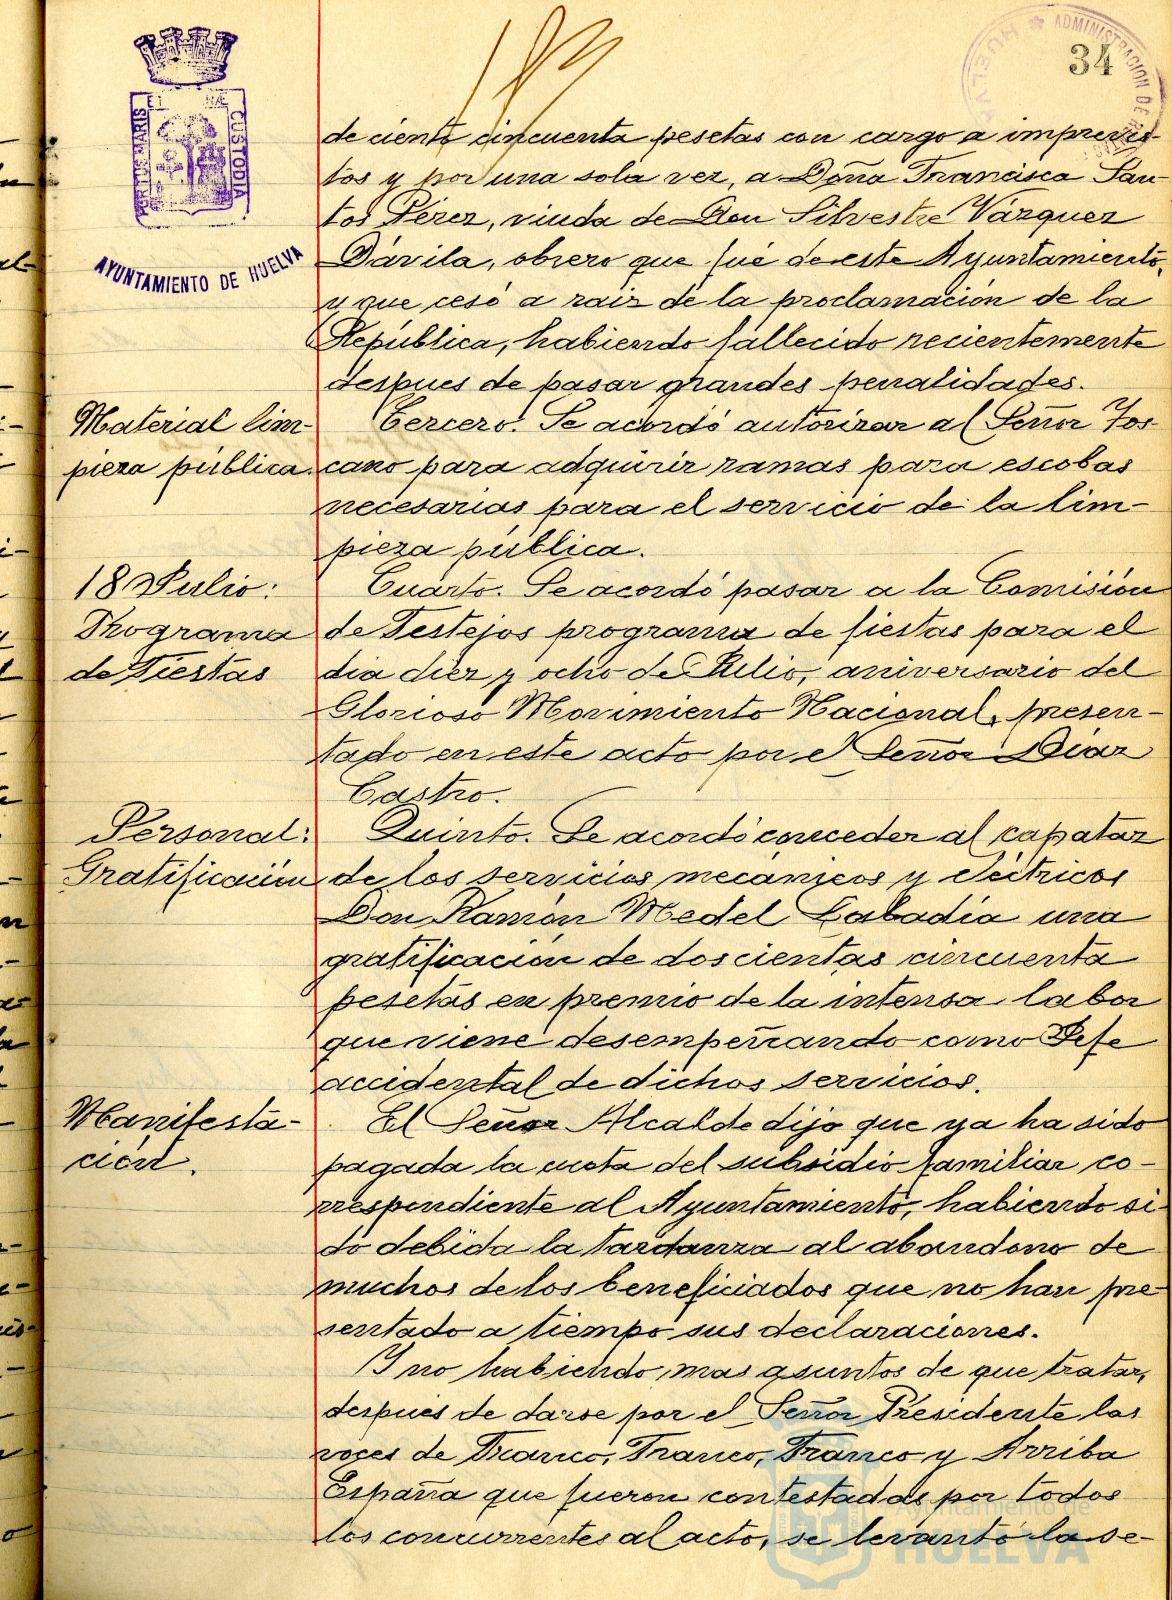 34
ADMINISTRACION DE
HUELVA
PORTUS MARIS ET TERRAE CUSTODIA
AYUNTAMIENTO DE HUELVA
de ciento cincuenta pesetas con cargo a imprevis-
tos y por una sola vez, a Doña Francisca San-
tos Pérez, viuda de Don Silvestre Vázquez
Dávila, obrero que fué de este Ayuntamiento,
y que cesó a raiz de la proclamación de la
República, habiendo fallecido recientemente
despues de pasar grandes penalidades.
Material lim-
pieza pública.
Tercero. Se acordó autorizar al Señor Tos-
cano para adquirir ramas para escobas
necesarias para el servicio de la lim-
pieza pública.
18 Julio:
Programa
de Fiestas
Cuarto. Se acordó pasar a la Comisión
de Festejos programa de fiestas para el
dia diez y ocho de Julio, aniversario del
Glorioso Movimiento Nacional, presen-
tado en este acto por el Señor Díaz
Castro.
Personal:
Gratificación
Quinto. Se acordó conceder al capataz
de los servicios mecánicos y eléctricos
Don Ramón Medel Labadía una
gratificación de doscientas cincuenta
pesetas en premio de la intensa labor
que viene desempeñando como Jefe
accidental de dichos servicios.
Manifesta-
ción.
El Señor Alcalde dijo que ya ha sido
pagada la cuota del subsidio familiar co-
rrespondiente al Ayuntamiento, habiendo si-
do debida la tardanza al abandono de
muchos de los beneficiados que no han pre-
sentado a tiempo sus declaraciones.
Y no habiendo mas asuntos de que tratar,
despues de darse por el Señor Presidente las
voces de Franco, Franco, Franco y Arriba
España que fueron contestadas por todos
los concurrentes al acto, se levantó la se-
Ayuntamiento de
HUELVA